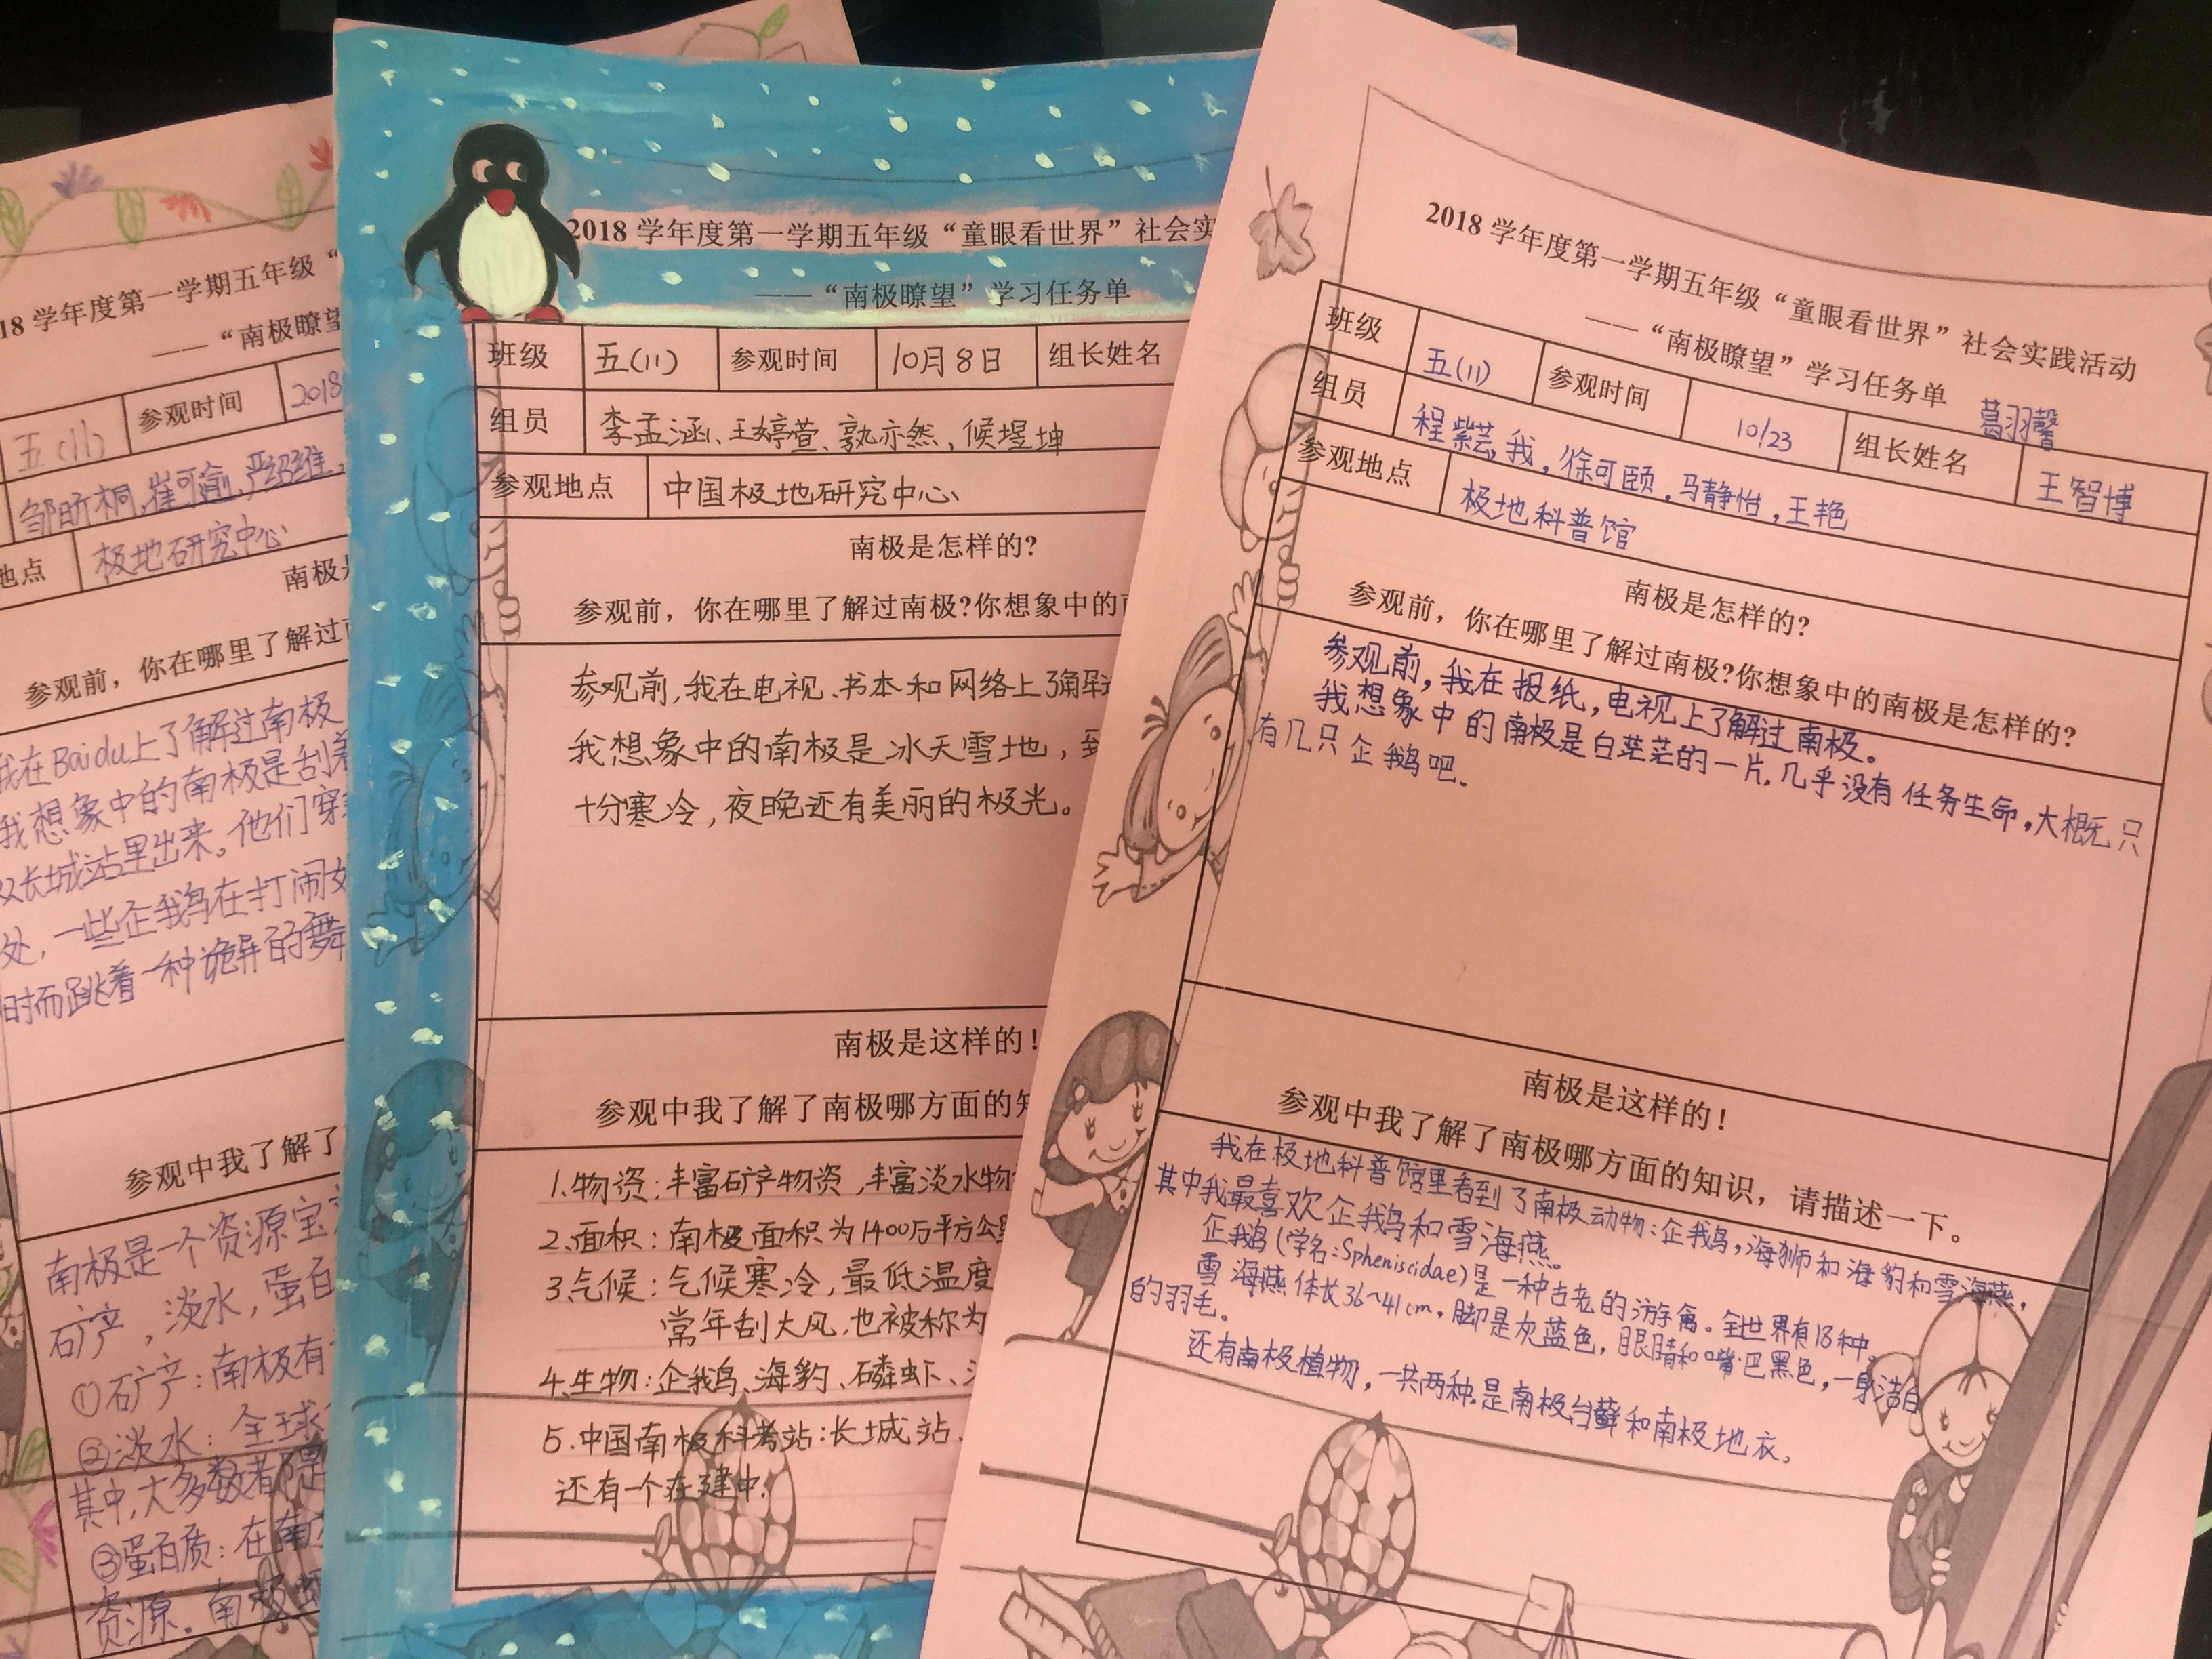 18 学年度第一学期五年级“
——“南极瞭望
五(11) 参观时间 2018
邹昕桐,崔可逾,严绍维、
地点 极地研究中心
南极是
参观前，你在哪里了解过南
我在Baidu上了解过南极
我想象中的南极是刮着
从长城站里出来。他们穿
处，一些企鹅在打闹女
时而跳着一种诡异的舞
参观中我了解了
南极是一个资源宝
矿产，淡水，蛋白
①矿产：南极有
②淡水：全球
其中，大多数都是
③蛋白质：在南
资源。南极
2018 学年度第一学期五年级“童眼看世界”社会实
——“南极瞭望”学习任务单
班级 五(11) 参观时间 10月8日 组长姓名
组员 李孟涵、王婷萱、郭亦然，候堽坤
参观地点 中国极地研究中心
南极是怎样的?
参观前，你在哪里了解过南极?你想象中的南
参观前，我在电视、书本和网络上了解过
我想象中的南极是冰天雪地，到
十分寒冷，夜晚还有美丽的极光。
南极是这样的！
参观中我了解了南极哪方面的知
1.物资：丰富矿产物资，丰富淡水物
2.面积：南极面积为1400万平方公里
3.气候：气候寒冷，最低温度
常年刮大风，也被称为
4.生物：企鹅、海豹、磷虾、
5.中国南极科考站：长城站、
还有一个在建中。
2018 学年度第一学期五年级“童眼看世界”社会实践活动
——“南极瞭望”学习任务单
葛羽馨
班级 五(11) 参观时间 10/23 组长姓名 王智博
组员 程紫芸，我，徐可颐，马静怡，王艳
参观地点 极地科普馆
南极是怎样的?
参观前，你在哪里了解过南极?你想象中的南极是怎样的?
参观前，我在报纸，电视上了解过南极。
我想象中的南极是白茫茫的一片，几乎没有任务生命，大概只
有几只企鹅吧.
南极是这样的！
参观中我了解了南极哪方面的知识，请描述一下。
我在极地科普馆里看到了南极动物：企鹅，海狮和海豹和雪海燕，
其中我最喜欢企鹅和雪海燕。
企鹅(学名:Spheniscidae)是一种古老的游禽。全世界有18种。
雪海燕体长36~41cm，脚是灰蓝色，眼睛和嘴巴黑色，一身洁白
的羽毛.
还有南极植物，一共两种.是南极台藓和南极地衣.